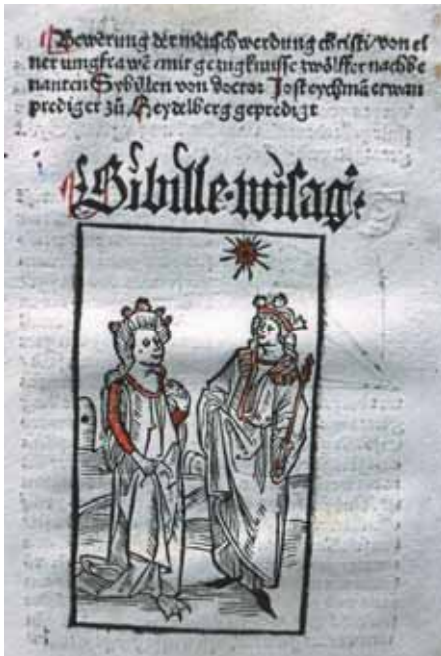 Bewerung der menschwerdung christi/von ei
ner iungfrawē mit gezugknusse zwölffer nachbe
nanten Sybillen von doctor Jost eychmā etwan
prediger zů Heydelberg gepredigt
Sibille·wisag·: